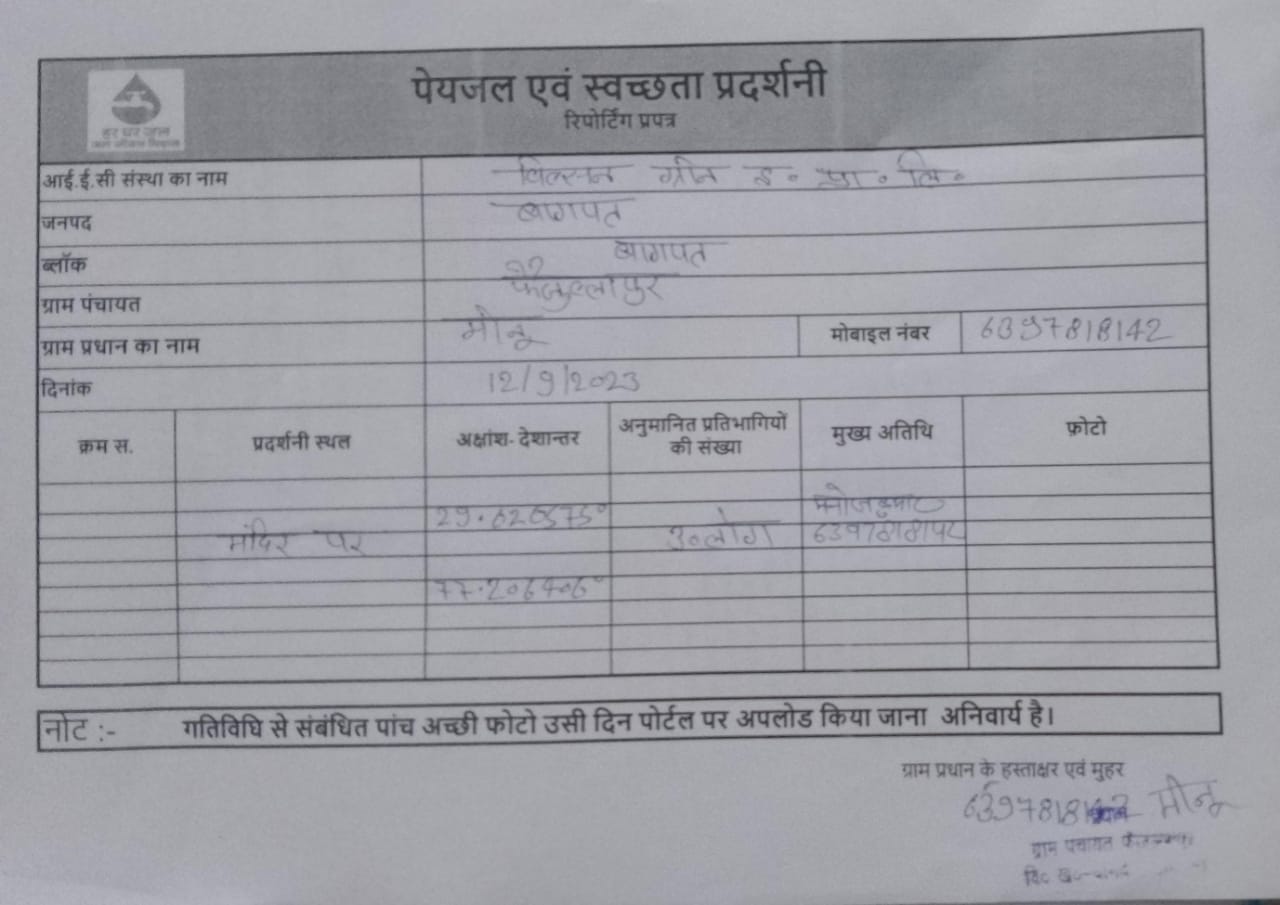 हर घर जल
जल जीवन मिशन
पेयजल एवं स्वच्छता प्रदर्शनी
रिपोर्टिंग प्रपत्र
आई.ई.सी संस्था का नाम विल्सन ग्रीन इ. प्रा. लि.
जनपद बागपत
ब्लॉक बागपत
ग्राम पंचायत फैजुल्लापुर
ग्राम प्रधान का नाम मीनू मोबाइल नंबर 6397818142
दिनांक 12/9/2023
क्रम स. प्रदर्शनी स्थल अक्षांश- देशान्तर अनुमानित प्रतिभागियों की संख्या मुख्य अतिथि फ़ोटो
मंदिर पर 30 लोग
77.206406°
नोट :- गतिविधि से संबंधित पांच अच्छी फोटो उसी दिन पोर्टल पर अपलोड किया जाना अनिवार्य है।
ग्राम प्रधान के हस्ताक्षर एवं मुहर
मीनू
ग्राम पंचायत